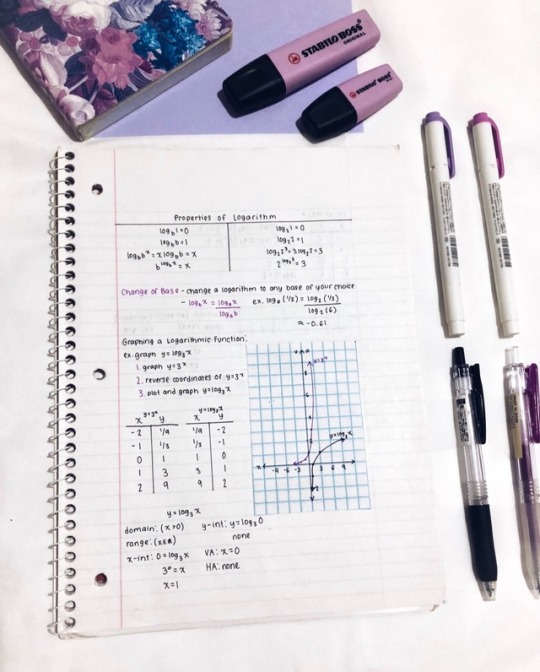 STABILO BOSS
ORIGINAL
STABILO BOSS
Properties of Logarithm
log_b 1 = 0
log_2 1 = 0
log_b b = 1
log_2 2 = 1
log_b b^x = x log_b b = x
log_2 2^3 = 3 log_2 2 = 3
b^(log_b x) = x
2^(log_2 3) = 3
Change of Base - change a logarithm to any base of your choice
- log_b x = log_a x / log_a b ex. log_6 (1/3) = log_2 (1/3) / log_2 (6)
≈ -0.61
Graphing a Logarithmic Function:
ex. graph y = log_3 x
1. graph y = 3^x
2. reverse coordinates of y = 3^x
3. plot and graph y = log_3 x
y=3^x y=log_3 x
x y x y
-2 1/9 1/9 -2
-1 1/3 1/3 -1
0 1 1 0
1 3 3 1
2 9 9 2
y=3^x
y=log_3 x
y = log_3 x
domain: (x>0) y-int: y = log_3 0
range: (x∈R) none
x-int: 0 = log_3 x VA: x = 0
3^0 = x HA: none
x = 1